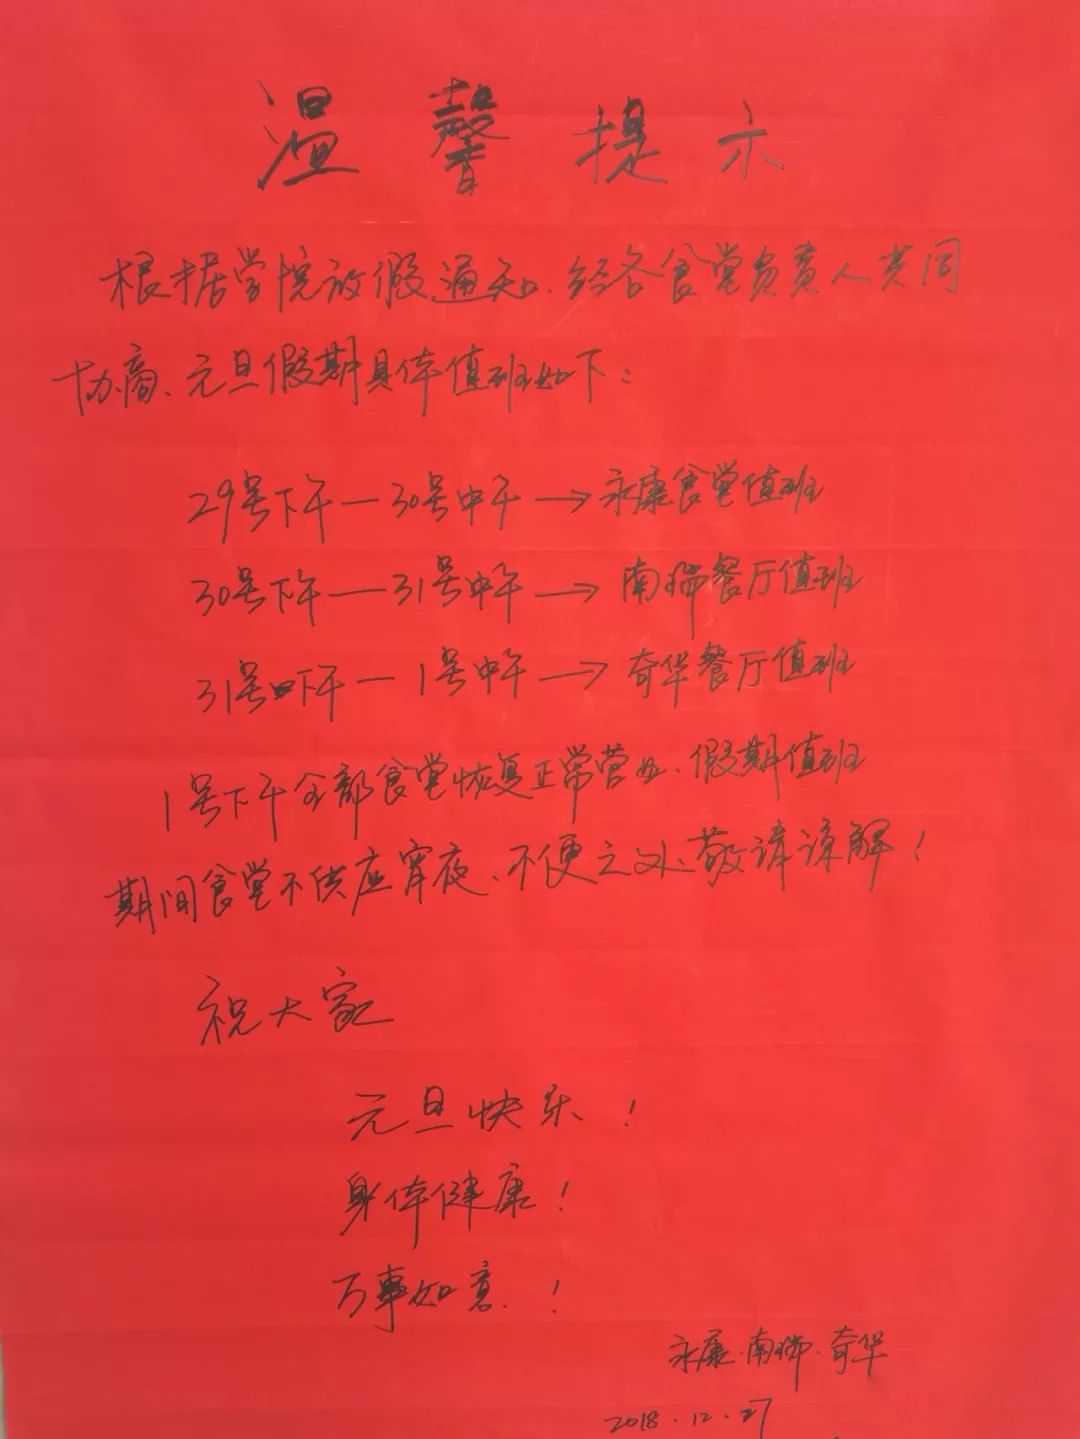 温馨提示
根据学院放假通知、经各食堂负责人共同
协商、元旦假期具体值班如下：
29号下午—30号中午→永康食堂值班
30号下午—31号中午→南瑞餐厅值班
31号下午—1号中午→奇华餐厅值班
1号下午全部食堂恢复正常营业、假期值班
期间食堂不供应宵夜、不便之处、敬请谅解！
祝大家
元旦快乐！
身体健康！
万事如意！
永康·南瑞·奇华
2018.12.27